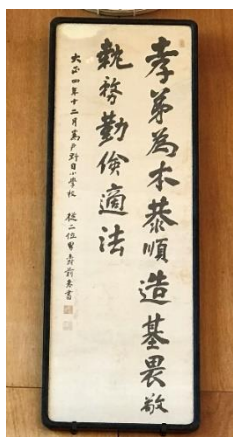 孝弟為本恭順造基畏敬
執務勤倹適法
大正四年十二月為戸野目小学校 従二位